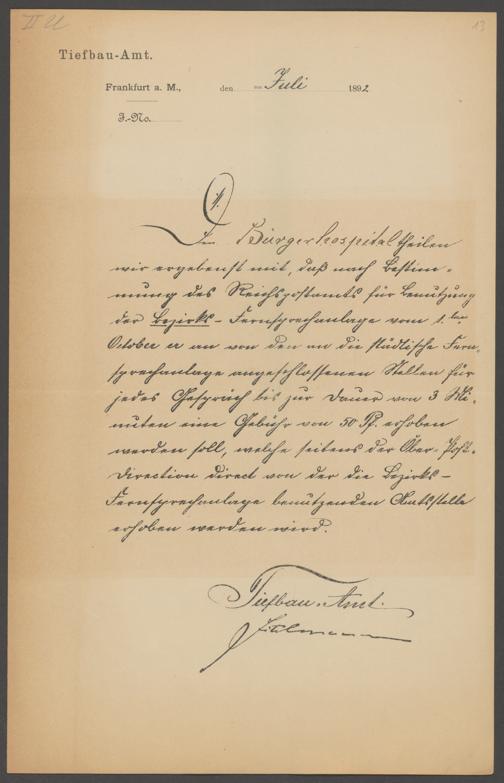 II U
13
Tiefbau-Amt.
Frankfurt a. M., den Juli 1892
J.-No.
1/.
Dem Bürgerhospital theilen
wir ergebenst mit, daß nach Bestim-
mung des Reichspostamts für Benützung
der Bezirks-Fernsprechanlage vom 1. ten
October cr an von den an die städtische Fern-
sprechanlage angeschlossenen Stellen für
jedes Gespräch bis zur Dauer von 3 Mi-
nuten eine Gebühr von 50 Pf. erhoben
werden soll, welche seitens der Ober-Post-
direction direct von der die Bezirks-
Fernsprechanlage benützenden Amtsstelle
erhoben werden wird.
Tiefbau-Amt.